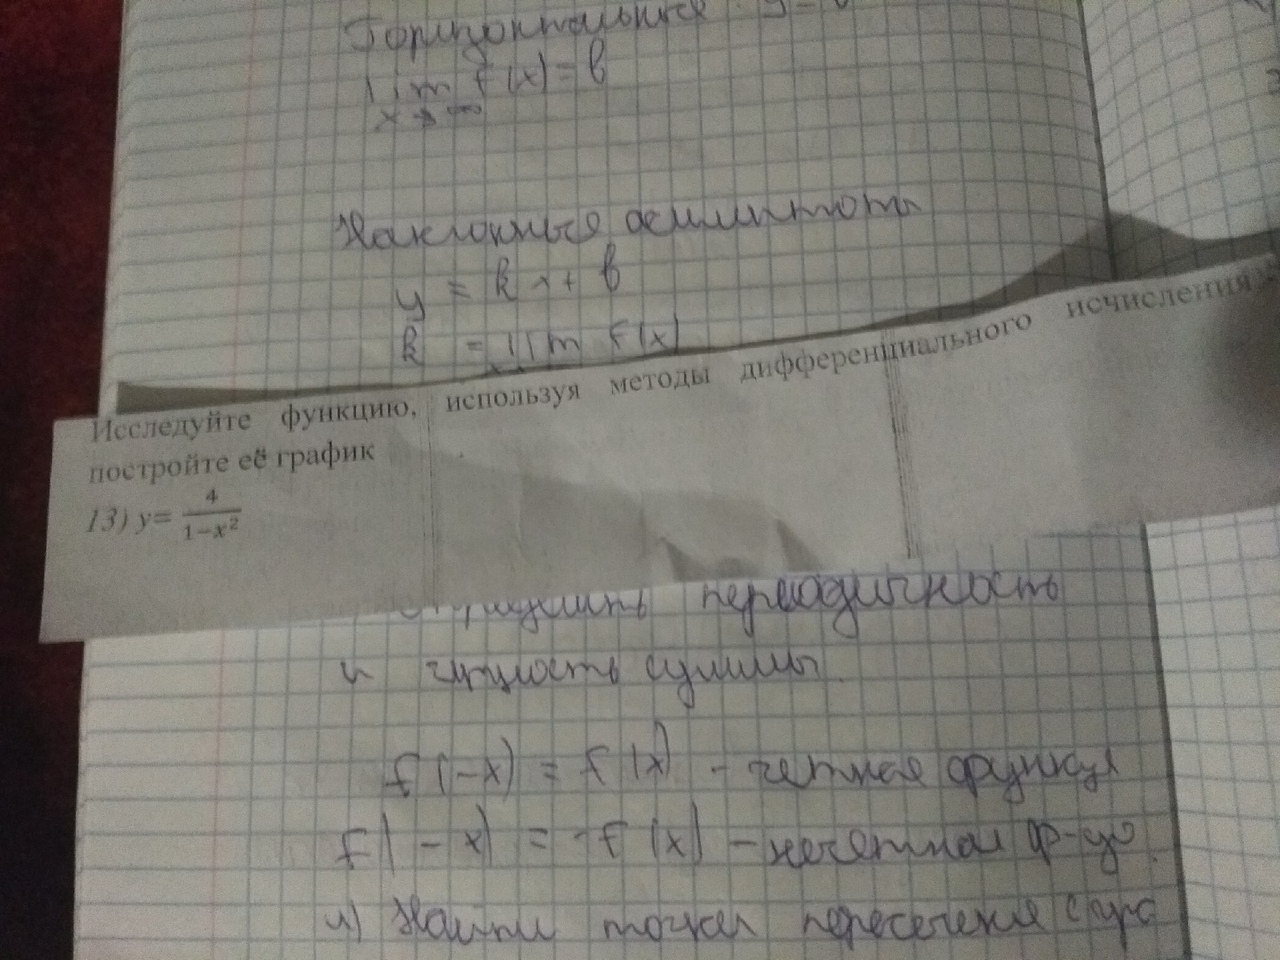 Горизонтальные y=
lim f(x) = b
x→∞
Наклонные асимптоты
y = kx + b
k = lim f(x)
Исследуйте функцию, используя методы дифференциального исчисления
постройте её график
13) y= 4/(1−x²)
периодичность
и чётность суммы.
f(-x) = f(x) - четная функция
f(-x) = -f(x) - нечетная ф-ция
4) Найти точки пересечения с